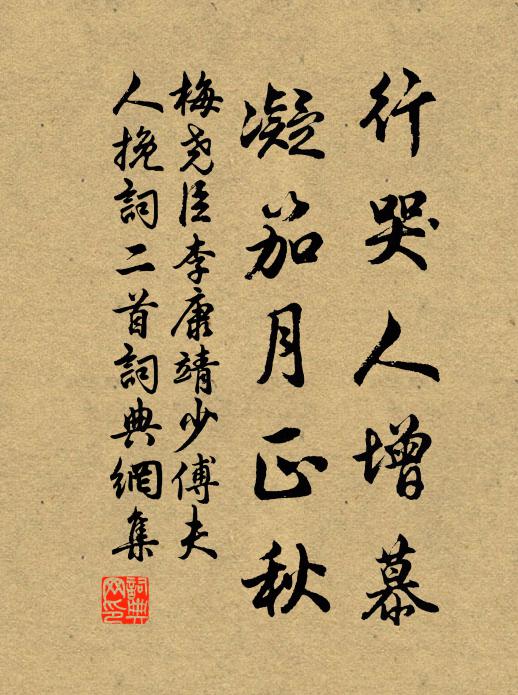 行哭人增慕
凝笳月正秋
梅尧臣李康靖少傅夫
人挽詞二首詞典網集
詞典
网印